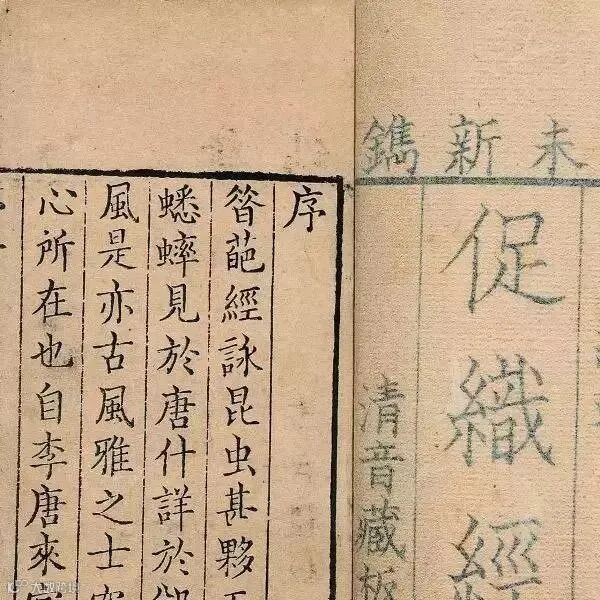 未新鐫
促織經
清音藏板
序
昝葩經詠昆虫甚夥
蟋蟀見於唐什詳於
風是亦古風雅之士
心所在也自李唐來
大数跨境